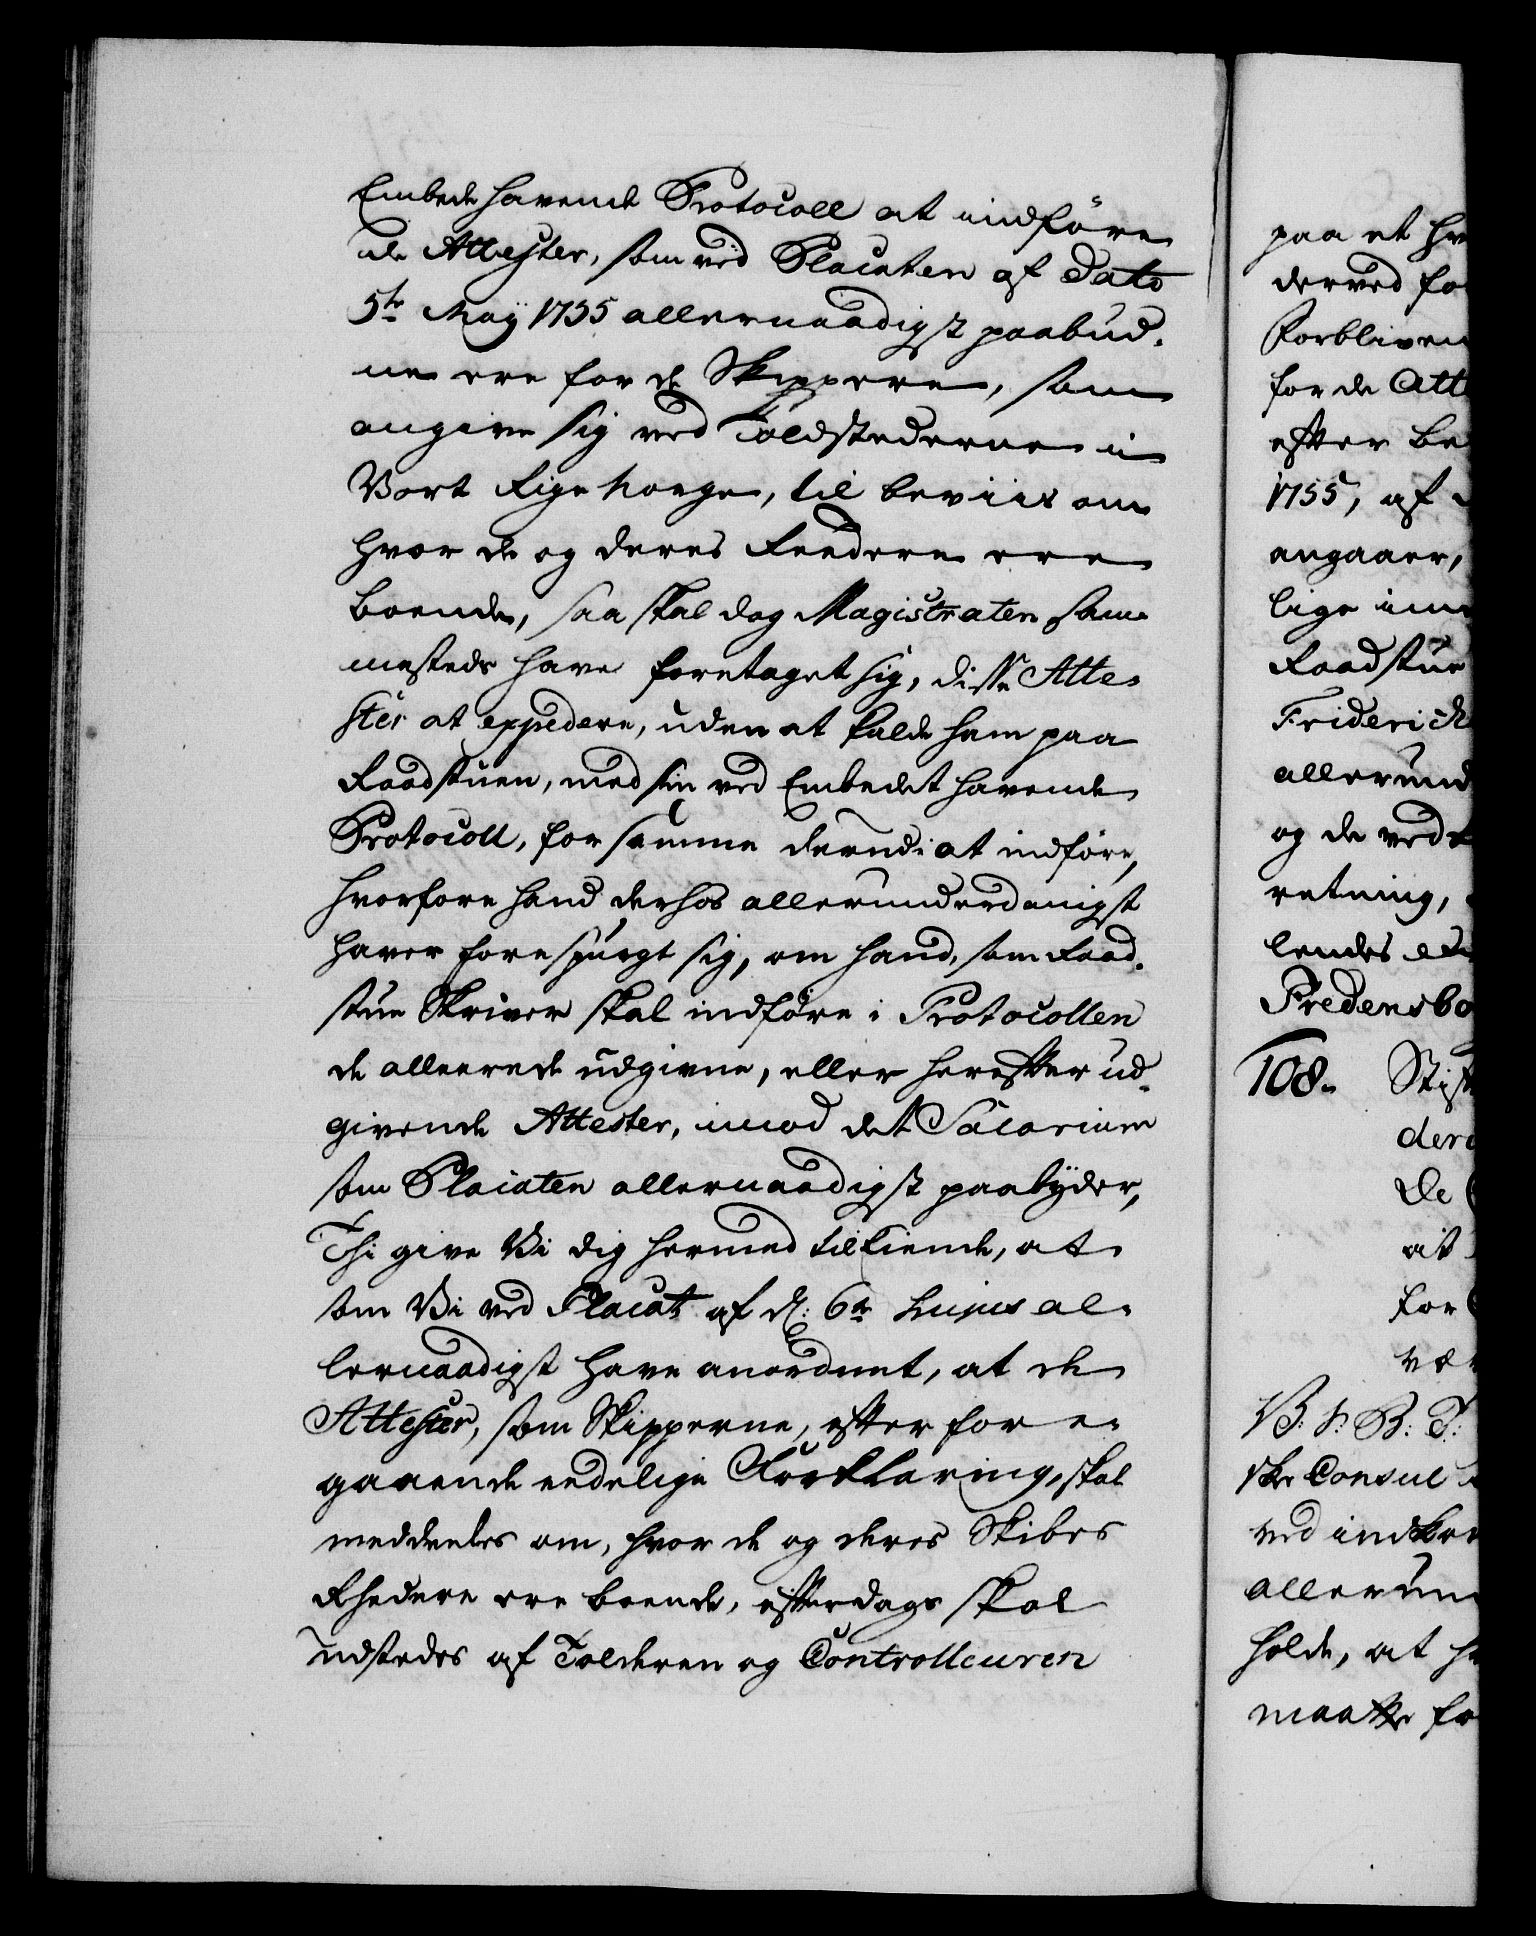 Embede havende Protocoll at indføre
de Attester, som ved Placaten af Dato
5te Maÿ 1755 allernaadigst paabud-
ne ere for de Skippere, som
angive sig ved Toldstederne i
Vort Rige Norge, til beviis om
hvor de og deres Reedere ere
boende, saa skal dog Magistraten sam-
mesteds have foretaget sig, disse Atte-
ster at expedere, uden at kalde ham paa
Raadstuen, med sin ved Embedet havende
Protocoll, for samme derudi at indføre,
hvorfore hand derhos allerunderdanigst
haver forespurgt sig, om hand, som Raad-
stue Skriver skal indføre i Protocollen
de allerede udgivne, eller herefter ud-
givende Attester, imod det Salarium
som Placaten allernaadigst paabyder,
Thi give Vi dig hermed tilkiende, at
som Vi ved Placat af d: 6te hujus al-
lernaadigst have anordnet, at de
Attester, som Skipperne, efter fore-
gaaende eedelige Forklaring, skal
meddeeles om, hvor de og deres Skibes
Rhedere ere boende, efterdags skal
udstedes af Tolderen og Controlleuren
paa et
derved
Forbliven
for de Att
efter be
1755, af
angaaer,
lige
Raadstue
Friderich
allerund
og de ved
retning,
lendes
Fredensbo
108. Stift
de
at
for
vær
V: S: B: T:
ske Consul
ved
allerun
holde, at
maatte